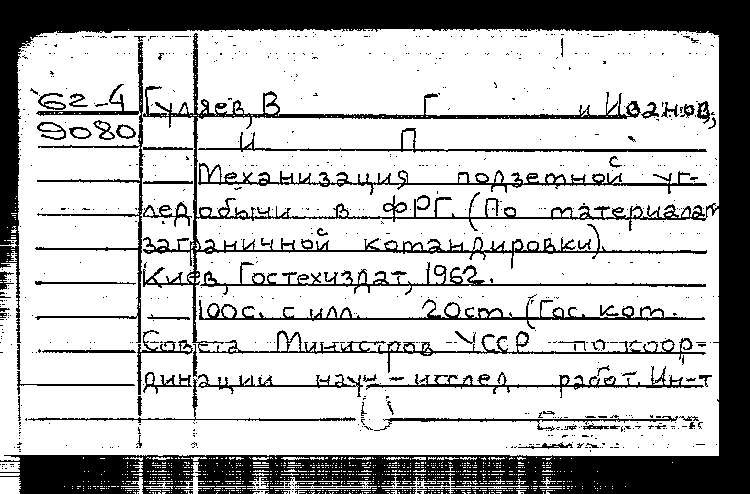 62-4 Гуляев, В Г и Иванов,
9080 И П
Механизация подземной уг-
ледобычи в ФРГ. (По материалам
заграничной командировки).
Киев, Гостехиздат, 1962.
100с. с илл. 20см. (Гос. ком.
Совета Министров УССР по коор-
динации науч-исслед. работ. Ин-т